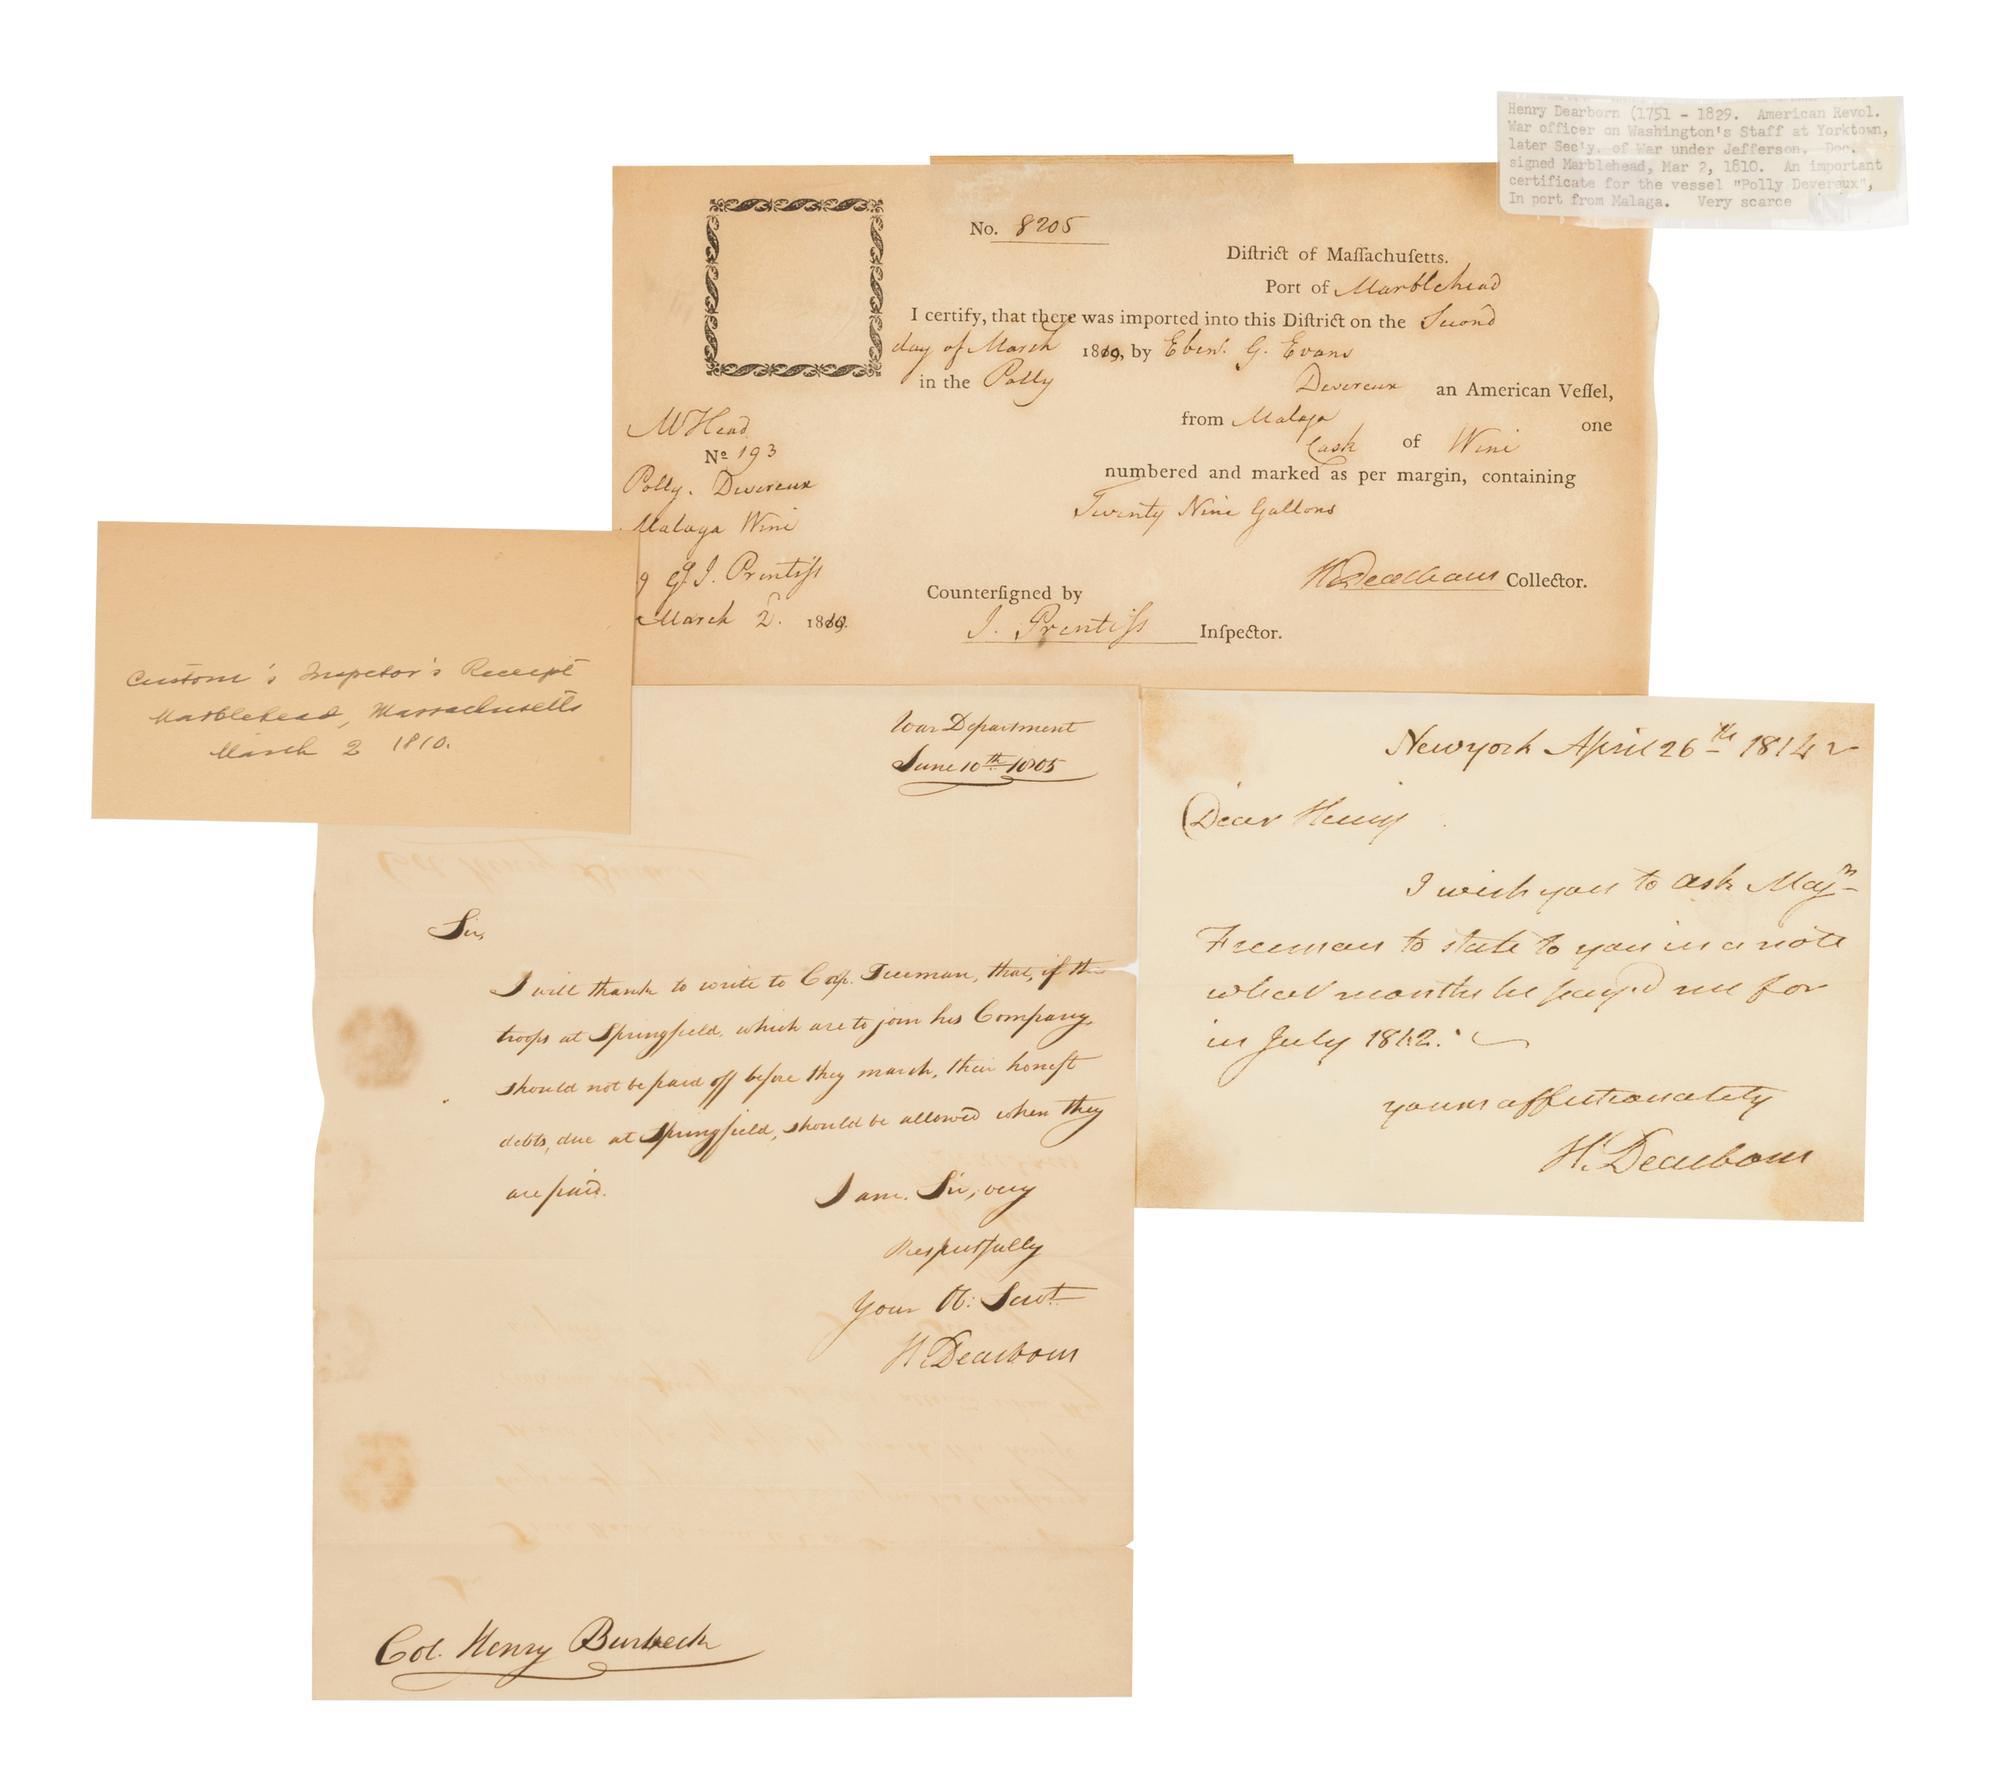 Henry Dearborn (1751 - 1829. American Revol.
War officer on Washington's Staff at Yorktown,
later Sec'y. of War under Jefferson. Doc.
signed Marblehead, Mar 2, 1810. An important
certificate for the vessel "Polly Devereux",
In port from Malaga. Very scarce
No. 8205
Diſtrict of Maſſachuſetts.
Port of Marblehead
I certify, that there was imported into this Diſtrict on the Second
day of March 1810, by Ebenr. G. Evans
in the Polly Devereux an American Veſſel,
from Malaga one
Cask of Wine
numbered and marked as per margin, containing
Twenty Nine Gallons
H. Dearborn Collector.
Counterſigned by
J. Prentiſs Inſpector.
M Head
No 193
Polly. Devereux
Malaga Wine
29 Gs J. Prentiſs
March 2d. 1810.
Custom's Inspetor's Receipt
Marblehead, Massachusetts
March 2 1810.
War Department
June 10th 1805
Sir,
I will thank to write to Cap. Freeman, that, if the
troops at Springfield, which are to join his Company,
should not be paid off before they march, their honest
debts, due at Springfield, should be allowed when they
are paid.
I am. Sir, very
Respectfully
Your H: Servt.
H. Dearborn
Col. Henry Burbeck
Newyork April 26th 1814
Dear Henry
I wish you to ask Majr
Freeman to state to you in a note
what months he pay'd me for
in July 1812.
yours affectionately
H. Dearborn